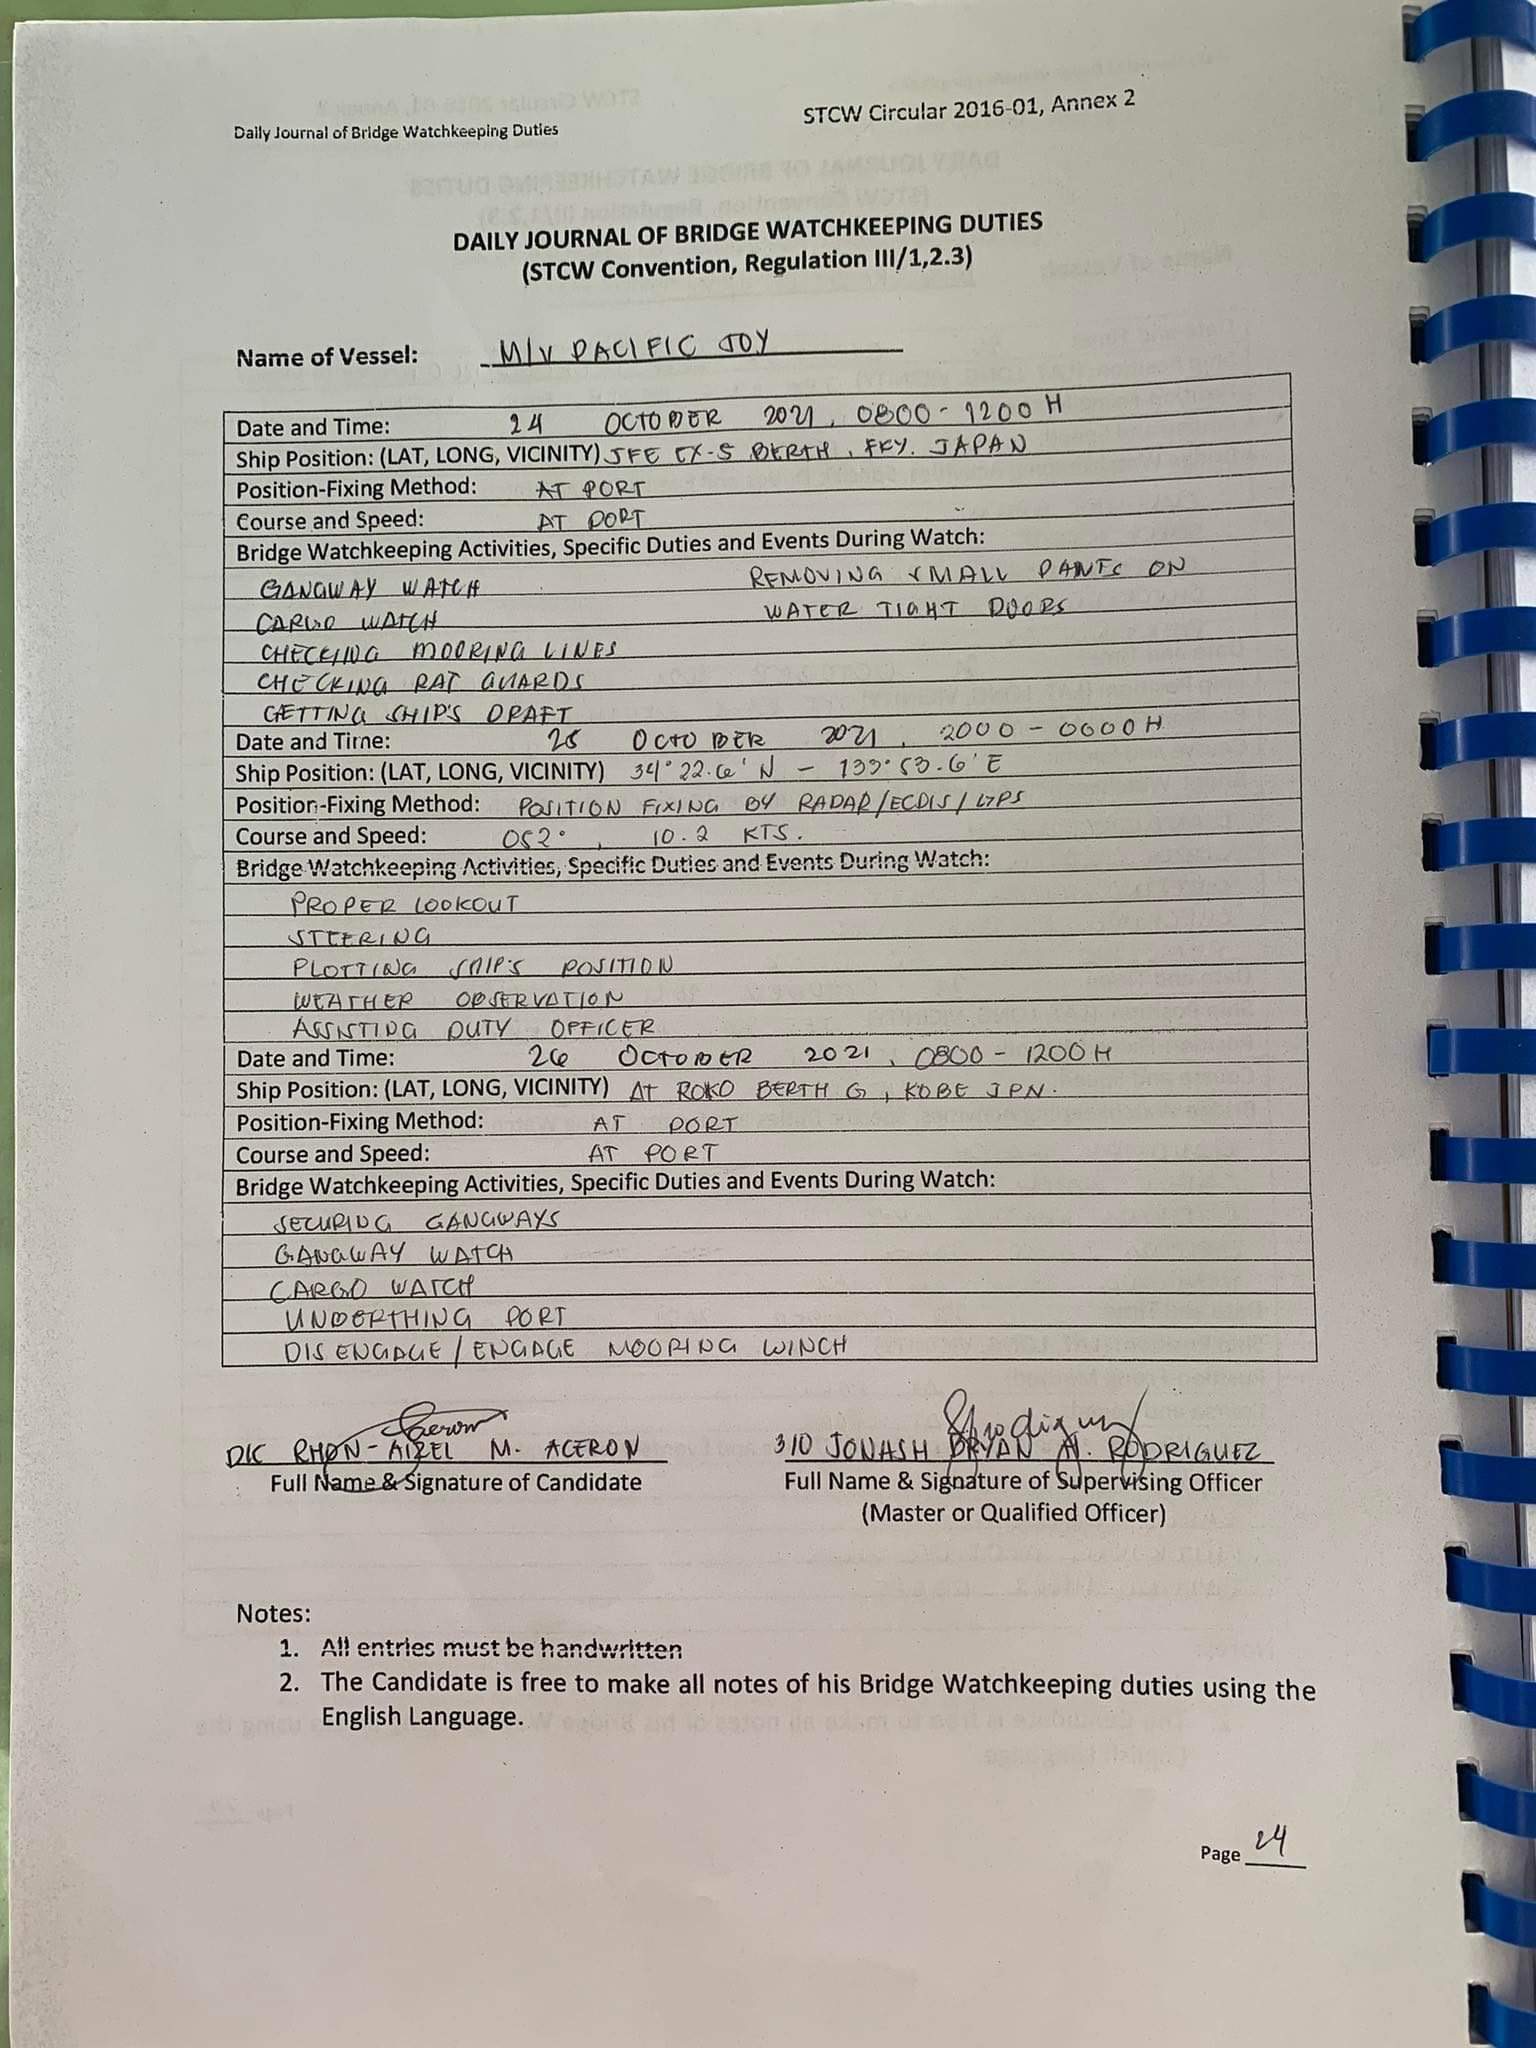 Daily Journal of Bridge Watchkeeping Duties
STCW Circular 2016-01, Annex 2
DAILY JOURNAL OF BRIDGE WATCHKEEPING DUTIES
(STCW Convention, Regulation III/1,2.3)
Name of Vessel: M/V PACIFIC JOY
Date and Time: 24 OCTOBER 2021, 0800-1200H
Ship Position: (LAT, LONG, VICINITY) JFE EX-5 BERTH, FKY. JAPAN
Position-Fixing Method: AT PORT
Course and Speed: AT PORT
Bridge Watchkeeping Activities, Specific Duties and Events During Watch:
GANGWAY WATCH REMOVING SMALL PANTS ON
CARGO WATCH WATER TIGHT DOORS
CHECKING MOORING LINES
CHECKING RAT GUARDS
GETTING SHIP'S DRAFT
Date and Time: 25 OCTOBER 2021, 2000-0000H
Ship Position: (LAT, LONG, VICINITY) 34° 22.6' N - 133° 53.6' E
Position-Fixing Method: POSITION FIXING BY RADAR/ECDIS/GPS
Course and Speed: 052°, 10.2 KTS.
Bridge Watchkeeping Activities, Specific Duties and Events During Watch:
PROPER LOOKOUT
STEERING
PLOTTING SHIP'S POSITION
WEATHER OBSERVATION
ASSISTING DUTY OFFICER
Date and Time: 26 OCTOBER 2021, 0800-1200H
Ship Position: (LAT, LONG, VICINITY) AT ROKO BERTH G, KOBE JPN.
Position-Fixing Method: AT PORT
Course and Speed: AT PORT
Bridge Watchkeeping Activities, Specific Duties and Events During Watch:
SECURING GANGWAYS
GANGWAY WATCH
CARGO WATCH
UNDERTHING PORT
DISENGAGE/ENGAGE MOORING WINCH
D/C RHON-AIZEL M. ACERON 3/O JONASH BRYAN A. RODRIGUEZ
Full Name & Signature of Candidate Full Name & Signature of Supervising Officer
(Master or Qualified Officer)
Notes:
1. All entries must be handwritten
2. The Candidate is free to make all notes of his Bridge Watchkeeping duties using the
English Language.
Page 24